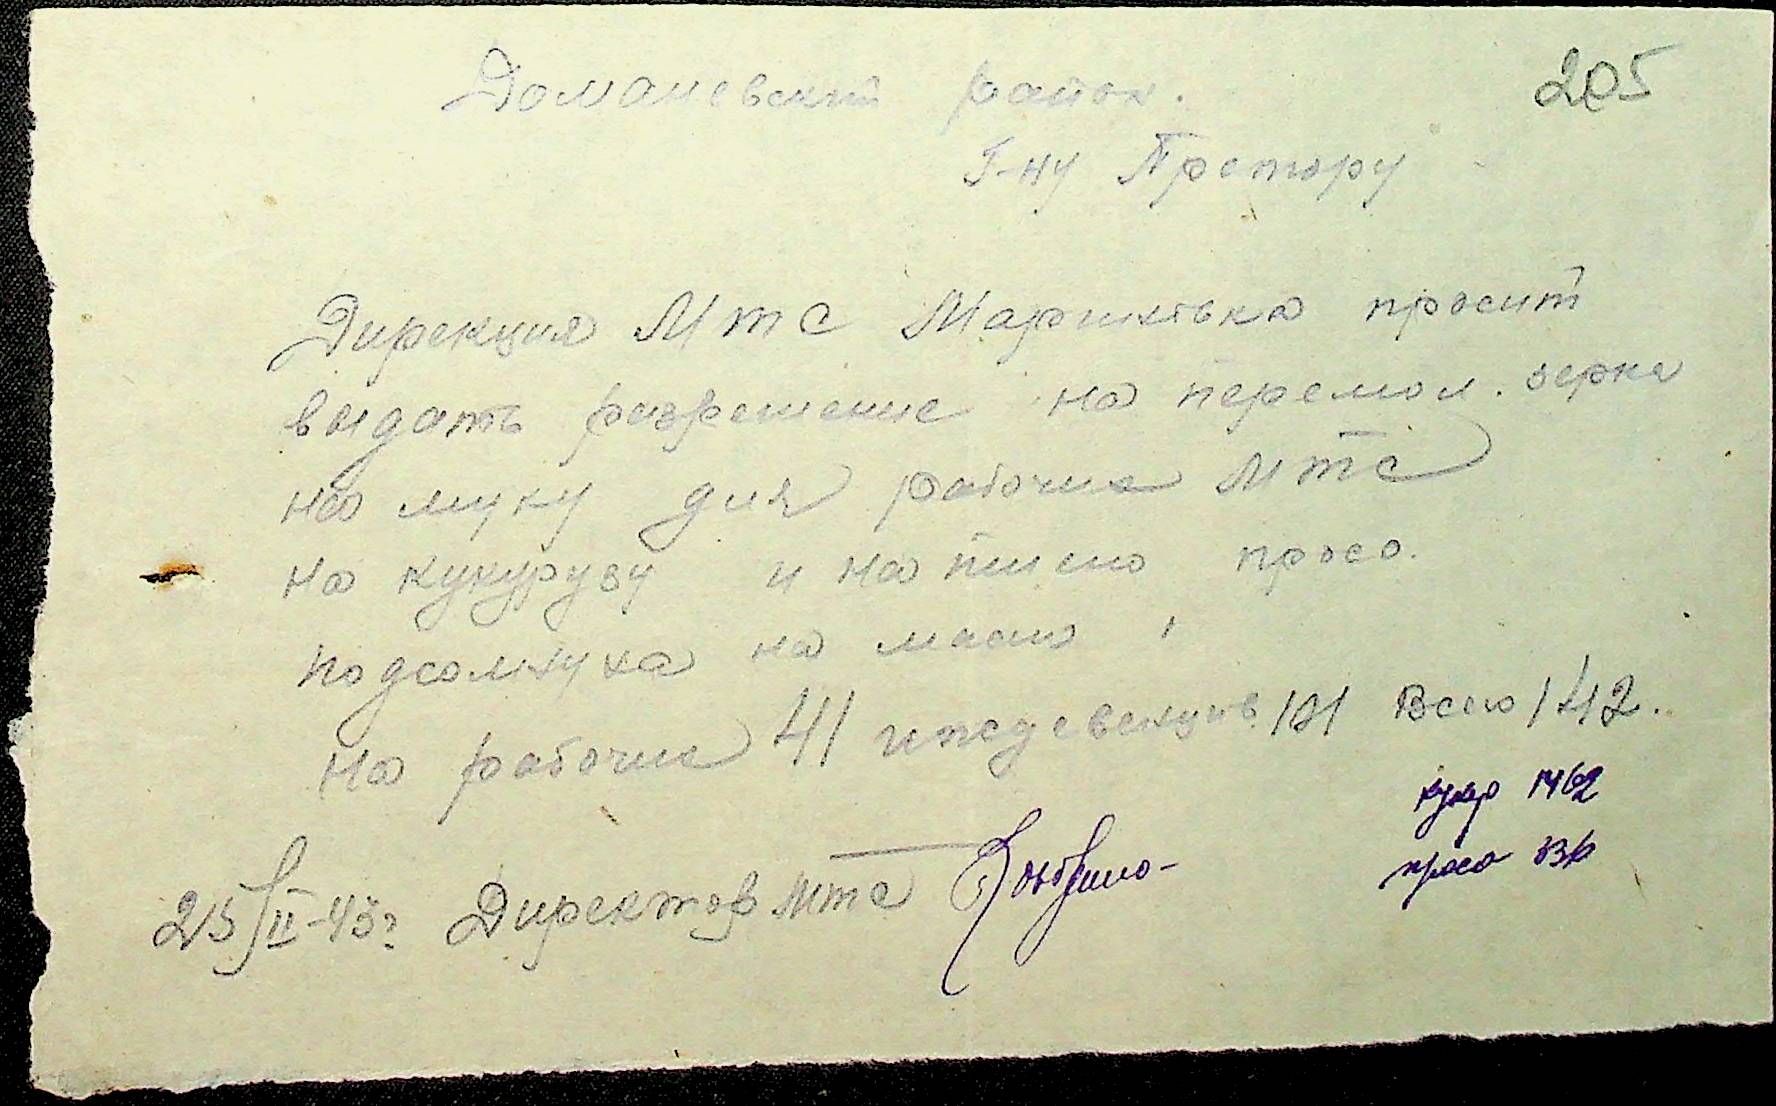 Доманевский район.
205
Г-ну Претору
Дирекция МТС Мариновка просит
выдать разрешение на перемол. зерна
на муку для рабочие МТС
на кукурузу и на пшено просо.
подсолнуха на масло
на рабочие 41 иждевенцив 101 Всего 142.
кукур 1462
просо 336
25/II-43г Директор МТС